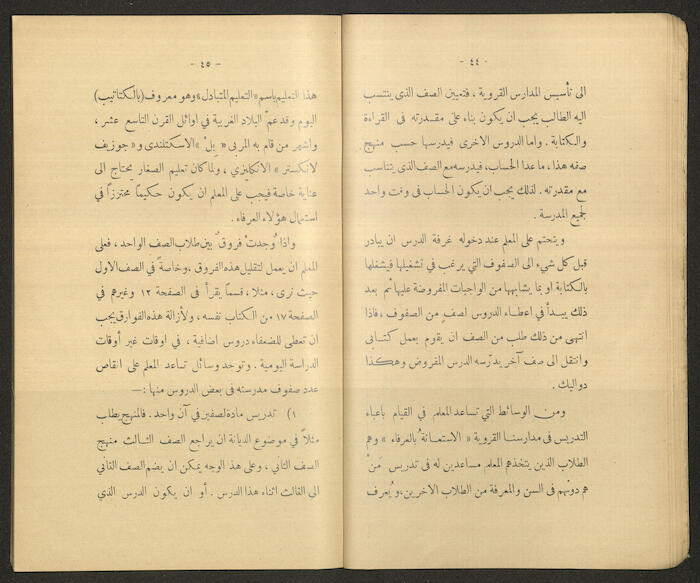 - ٤٤ -
الى تأسيس المدارس القروية ، فتعيين الصف الذى ينتسب
اليه الطالب يجب ان يكون بناء على مقدرته فى القراءة
والكتابة . واما الدروس الاخرى فيدرسها حسب منهج
صفه هذا ، ما عدا الحساب، فيدرسه مع الصف الذى يتناسب
مع مقدرته . لذلك يجب ان يكون الحساب فى وقت واحد
لجميع المدرسة .
ويتحتم على المعلم عند دخوله غرفة الدرس ان يبادر
قبل كل شىء الى الصفوف التى يرغب فى تشغيلها فيشغلها
بالكتابة او بما يشابهها من الواجبات المفروضة عليها ثم بعد
ذلك يبدأ في اعطاء الدروس لصف من الصفوف ، فاذا
انتهى من ذلك طلب من الصف ان يقوم بعمل كتابى
وانتقل الى صف آخر يدرّسه الدرس المفروض وهكذا
دواليك .
ومن الوسائط التى تساعد المعلم في القيام باعباء
التدريس فى مدارسنا القروية « الاستعانة بالعرفاء » وهم
الطلاب الذين يتخذهم المعلم مساعدين له فى تدريس مَنْ
هم دونهم فى السن والمعرفة من الطلاب الاخرين، ويُعرف
- ٤٥ -
هذا التعليم باسم « التعليم المتبادل » وهو معروف (بالكتاتيب)
اليوم وقد عمّ البلاد الغربية في اوائل القرن التاسع عشر ،
واشهر من قام به المربى « بِلْ » الاسكتلندى و « جوزيف
لانكستر » الانكليزي ، ولما كان تعليم الصغار يحتاج الى
عناية خاصة فيجب على المعلم ان يكون حكيمًا محترزاً في
استعمال هؤلاء العرفاء .
واذا وُجدتْ فروقٌ بين طلاب الصف الواحد ، فعلى
المعلم ان يعمل لتقليل هذه الفروق ، وخاصةً في الصف الاول
حيث نرى ، مثلا ، قسمًا يقرأ فى الصفحة ١٢ وغيرهم في
الصفحة ١٧ من الكتاب نفسه ، ولأزالة هذه الفوارق يجب
ان تعطى للضعفاء دروس اضافية ، فى اوقات غير أوقات
الدراسة اليومية . وتوجد وسائل تساعد المعلم على انقاص
عدد صفوف مدرسته فى بعض الدروس منها :—
١) تدريس مادة لصفين في آن واحد . فالمنهج يطلب
مثلاً في موضوع الديانة ان يراجع الصف الثالث منهج
الصف الثاني ، وعلى هذا الوجه يمكن ان يضم الصف الثاني
الى الثالث اثناء هذا الدرس . أو ان يكون الدرس الذي